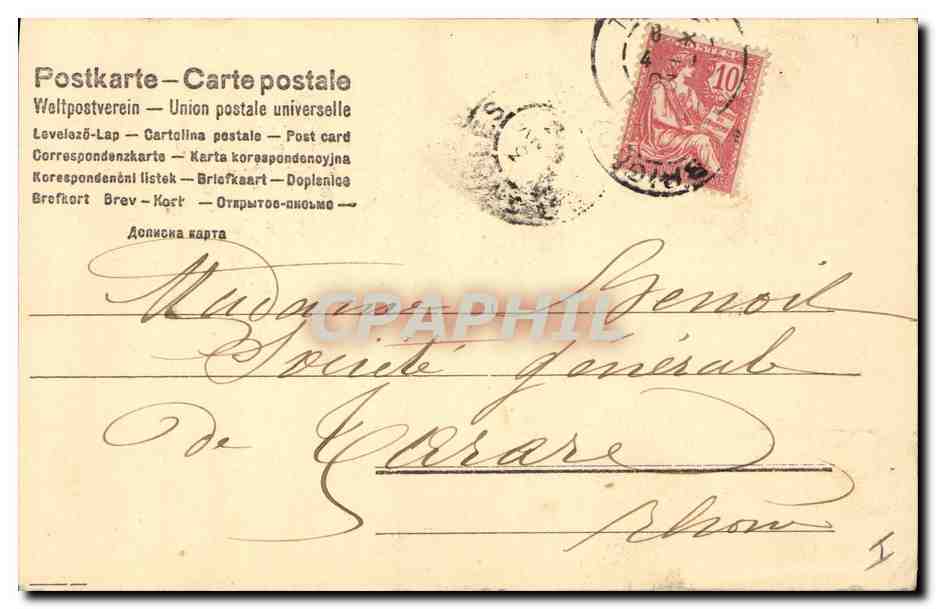 Postkarte – Carte postale
Weltpostverein — Union postale universelle
Levelező-Lap — Cartolina postale — Post card
Correspondenzkarte — Karta korespondencyjna
Korespondenční listek — Briefkaart — Dopisnice
Brefkort Brev-Kort — Открытое-письмо —
Дописна карта
10
CPAPHIL .com
Madame Benoit
Société générale
de Tarare
Rhône
I